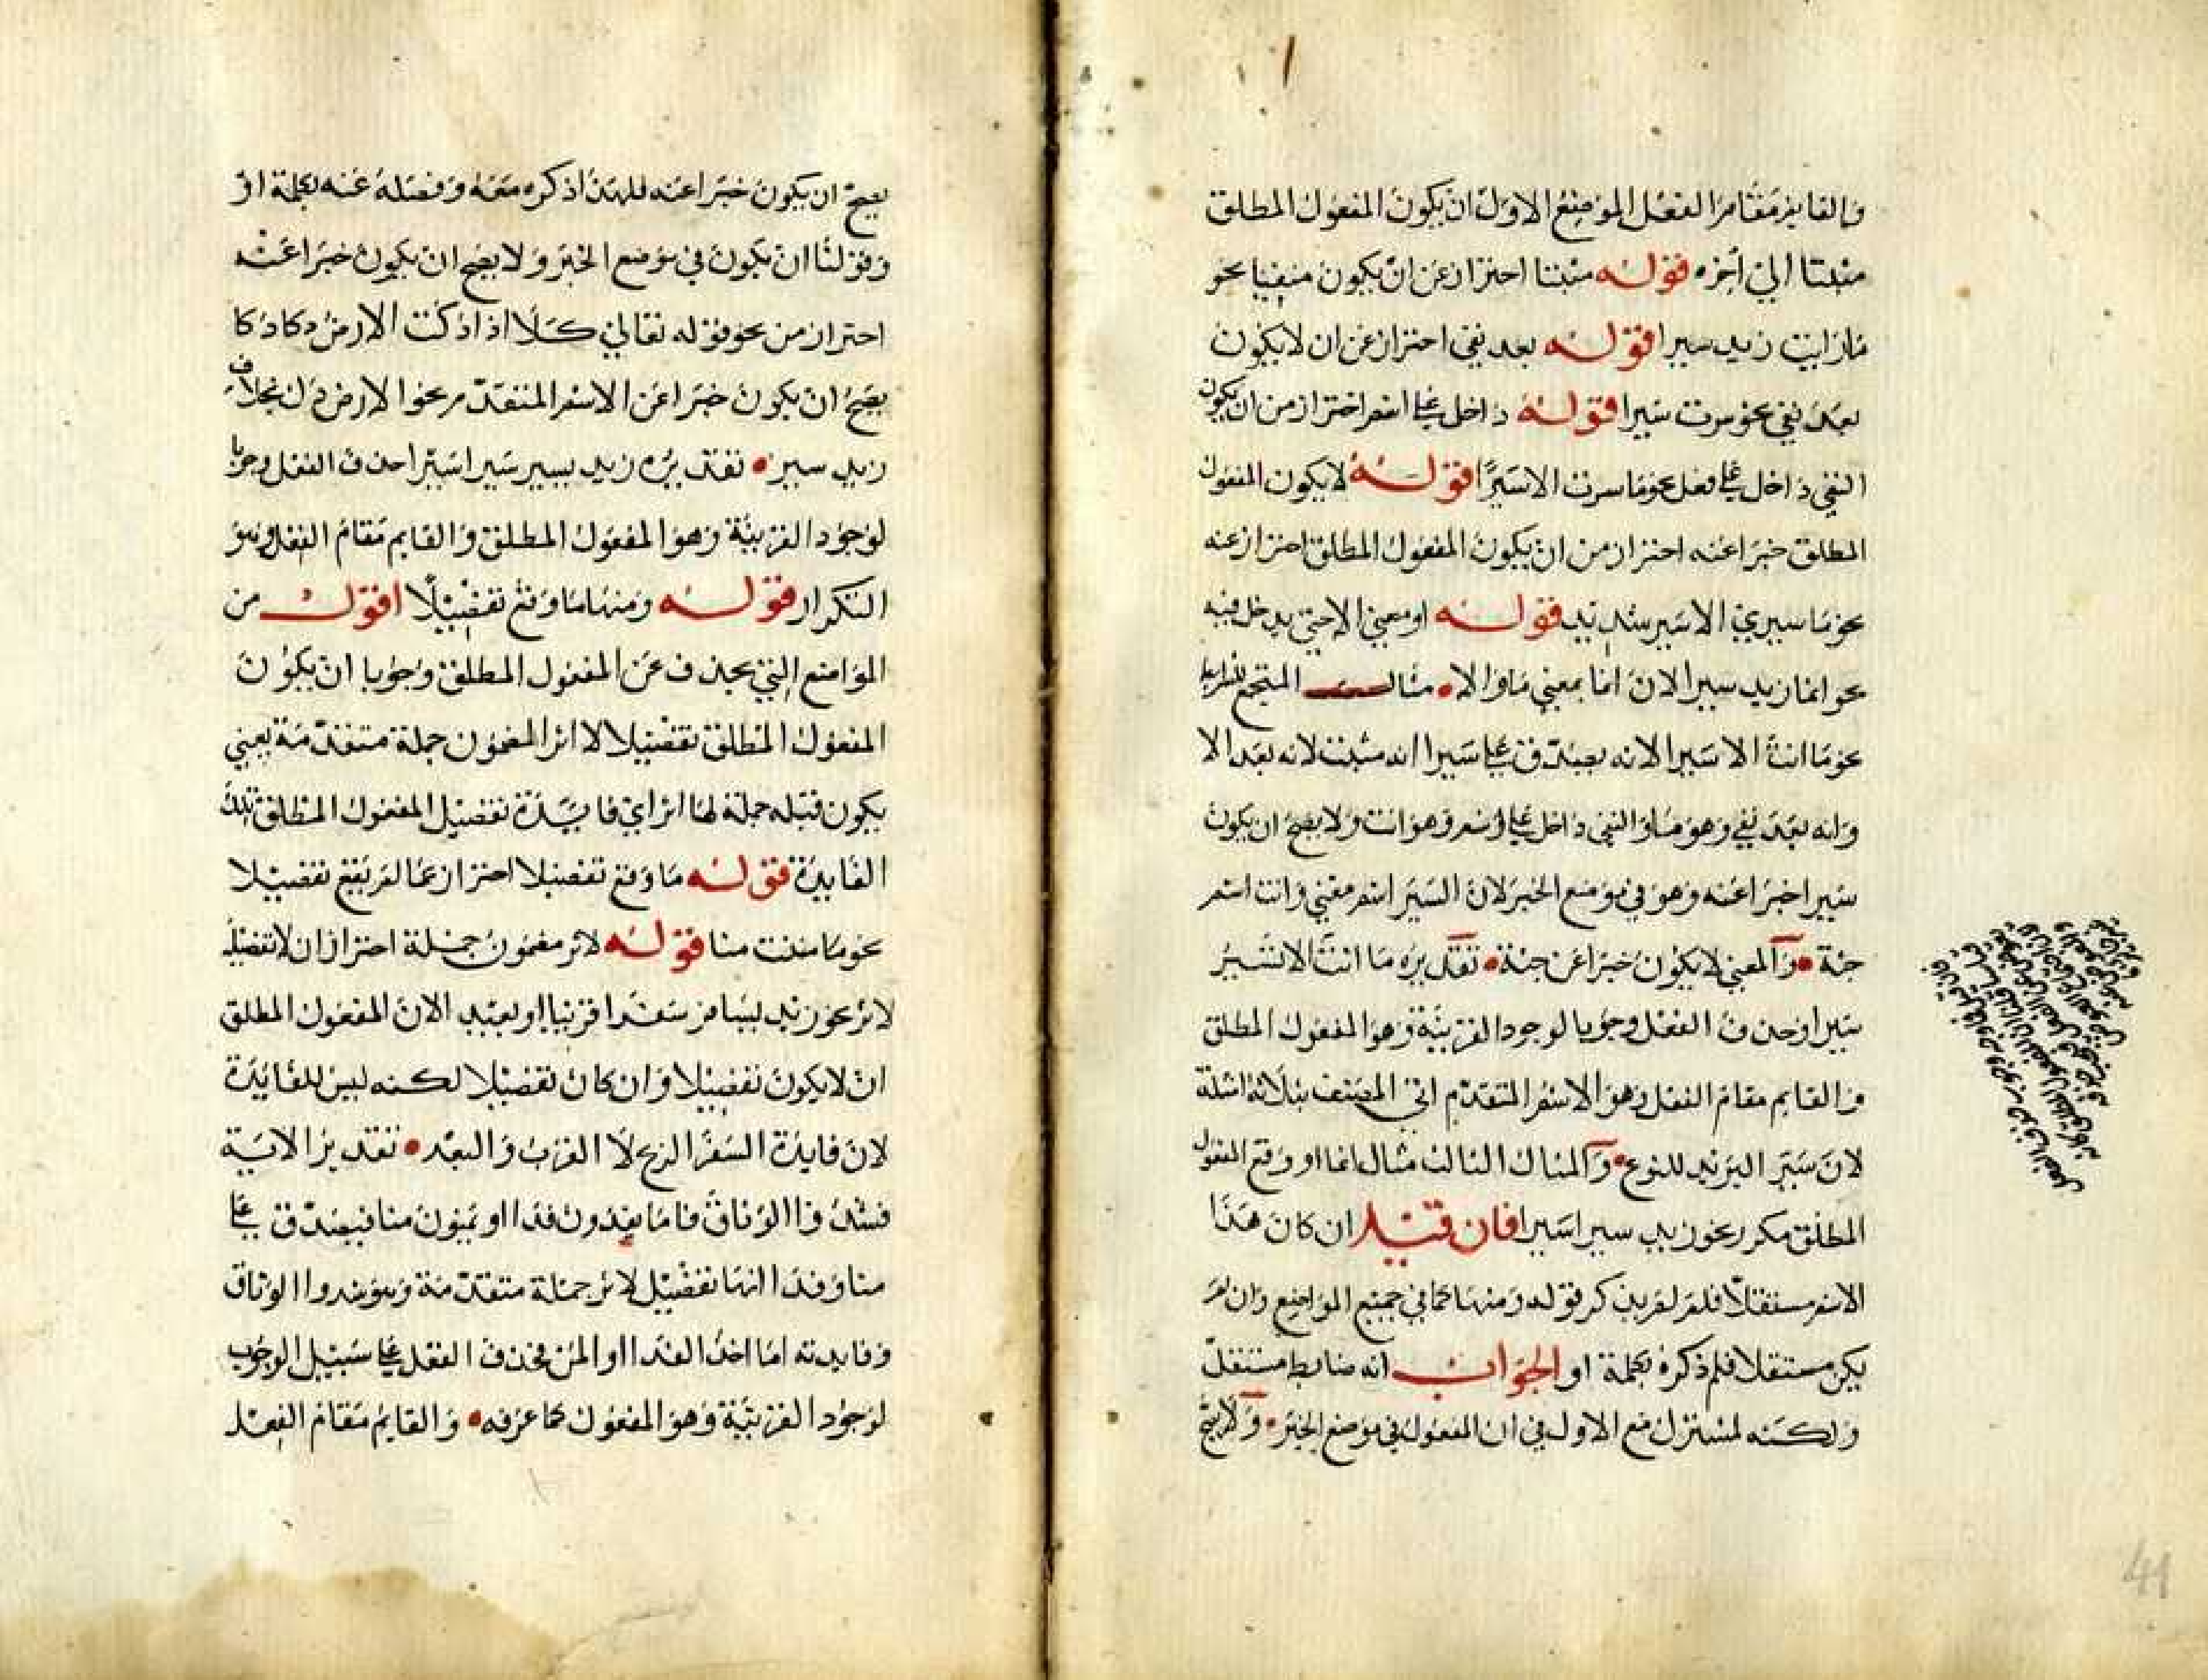 والقايم مقام الفعل الموضع الاول ان يكون المفعول المطلق
مثبتا الي آخره قوله مثبتا احترازعن ان يكون منفيا نحو
مارايت زيد سيرا قوله بعد نفي احترازعن ان لا يكون
بعد نفي نحو سرت سيرا قوله داخل علي اسم احترازمن ان يكون
النفي داخل علي فعل نحو ما سرت الا سيرًا قوله لا يكون المفعول
المطلق خبرا عنه احترازمن ان يكون المفعول المطلق احترازعنه
نحو ما سيري الا سير شديد قوله او معني الا حتي يدخل فيه
نحو انما زيد سيرا لان انما بمعني ما والا مثال المجتمع
نحو ما انت الا سيرا لانه يصدق علي سيرا انه مثبت لانه بعد الا
وانه بعد نفي وهو ما والنفي داخل علي اسم وهو انت ولا يصح ان يكون
سيرا خبرا عنه وهو في موضع الخبر لان السير اسم معني وانت اسم
جثة والمعني لا يكون خبرا عن جثة تقديره ما انت الا تسير
سيرا وحذف الفعل وجوبا لوجود القرينة وهو المفعول المطلق
والقايم مقام الفعل وهو الاسم المتقدم اتي المصنف بثلاثة امثلة
لان سير البريد للنوع والمثال الثالث مثال انما او وقع المفعول
المطلق مكرر نحو زيد سيرا سيرا فان قيل ان كان هذا
الاسم مستقلا فلم لم يذكر قوله ومنها كما في جميع المواضع وان لم
يكن مستقلا فلم ذكره بكلمة او الجواب انه ضابط مستقل
ولكنه لمشترك مع الاول في ان المفعول في موضع الخبر ولا يصح
يصح ان يكون خبرا عنه فلهذا ذكره معه وفصله عنه بكلمة او
وقولنا ان يكون في موضع الخبر ولا يصح ان يكون خبرا عنه
احترازمن نحو قوله تعالي كلا اذا دكت الارض دكا دكا
يصح ان يكون خبرا عن الاسم المتقدم نحو الارض دك بخلاف
زيد سير تقديره زيد يسير سيرا سيرا حذف الفعل وجوبا
لوجود القرينة وهو المفعول المطلق والقايم مقام الفعل وهو
التكرار قوله ومنها ما وقع تفضيلا اقول من
المواضع التي يحذف عن المفعول المطلق وجوبا ان يكون
المفعول المطلق تفضيلا لاثر المضمون جملة متقدمة يعني
يكون قبله جملة لها اثر اي فايدة تفضيل المفعول المطلق تلك
الفايدة قوله ما وقع تفضيلا احترازعما لم يقع تفضيلا
نحو مننت منا قوله لاثر مضمون جملة احترازان لا تفضيله
لاثر نحو زيد يسافر سفرا قريبا او بعيد الان المفعول المطلق
ان لا يكون تفضيلا وان كان تفضيلا لكنه ليس للفايدة
لان فايدة السفر الربح لا القرب والبعد تقديرالاية
فشدوا الوثاق فاما يفدون فدا او يمنون منا فيصدق علي
منا وفدا انها تفضيل لاثر جملة متقدمة وهو شدوا الوثاق
وفايدته اما اخذ الفدا او المن فحذف الفعل علي سبيل الوجوب
لوجود القرينة وهو المفعول كما عرفه والقايم مقام الفعل
41